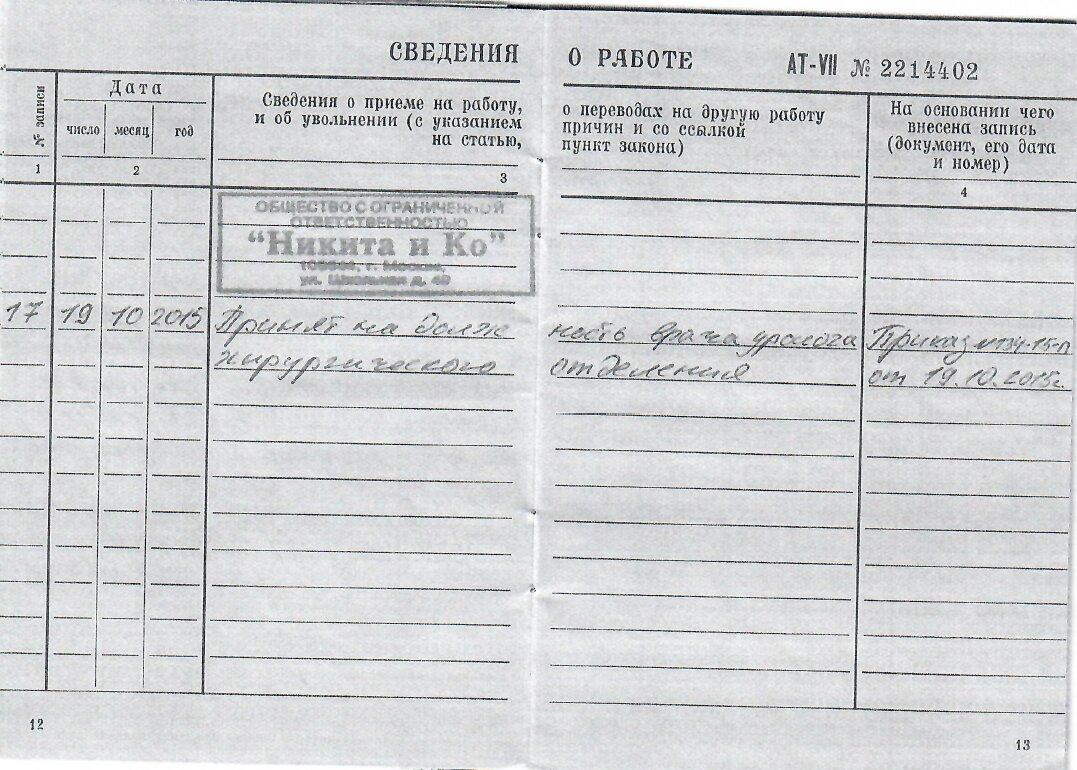 СВЕДЕНИЯ
О РАБОТЕ АТ-VII № 2214402
№ записи
Дата
число месяц год
Сведения о приеме на работу,
и об увольнении (с указанием
на статью,
о переводах на другую работу
причин и со ссылкой
пункт закона)
На основании чего
внесена запись
(документ, его дата
и номер)
1 2 3 4
ОБЩЕСТВО С ОГРАНИЧЕННОЙ
ОТВЕТСТВЕННОСТЬЮ
"Никита и Ко"
г. Москва,
ул. Школьная д.
17 19 10 2015 Принят на долж ность врача уролога Приказ №134-15-П
хирургического отделения от 19.10.2015г.
12
13